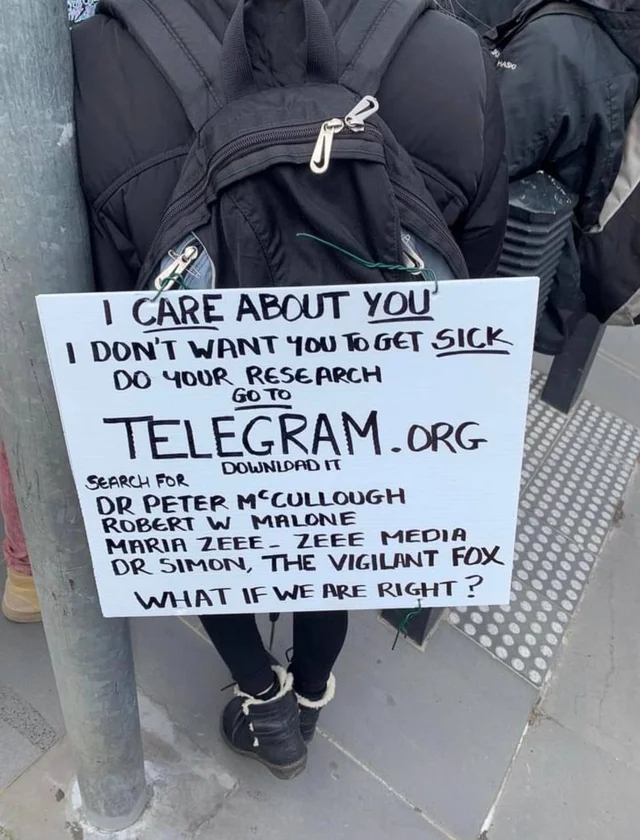 I CARE ABOUT YOU
I DON'T WANT YOU TO GET SICK
DO YOUR RESEARCH
GO TO
TELEGRAM.ORG
DOWNLOAD IT
SEARCH FOR
DR PETER McCULLOUGH
ROBERT W MALONE
MARIA ZEEE - ZEEE MEDIA
DR SIMON, THE VIGILANT FOX
WHAT IF WE ARE RIGHT?